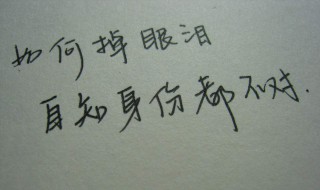 如何掉眼泪
自知身份都不对.